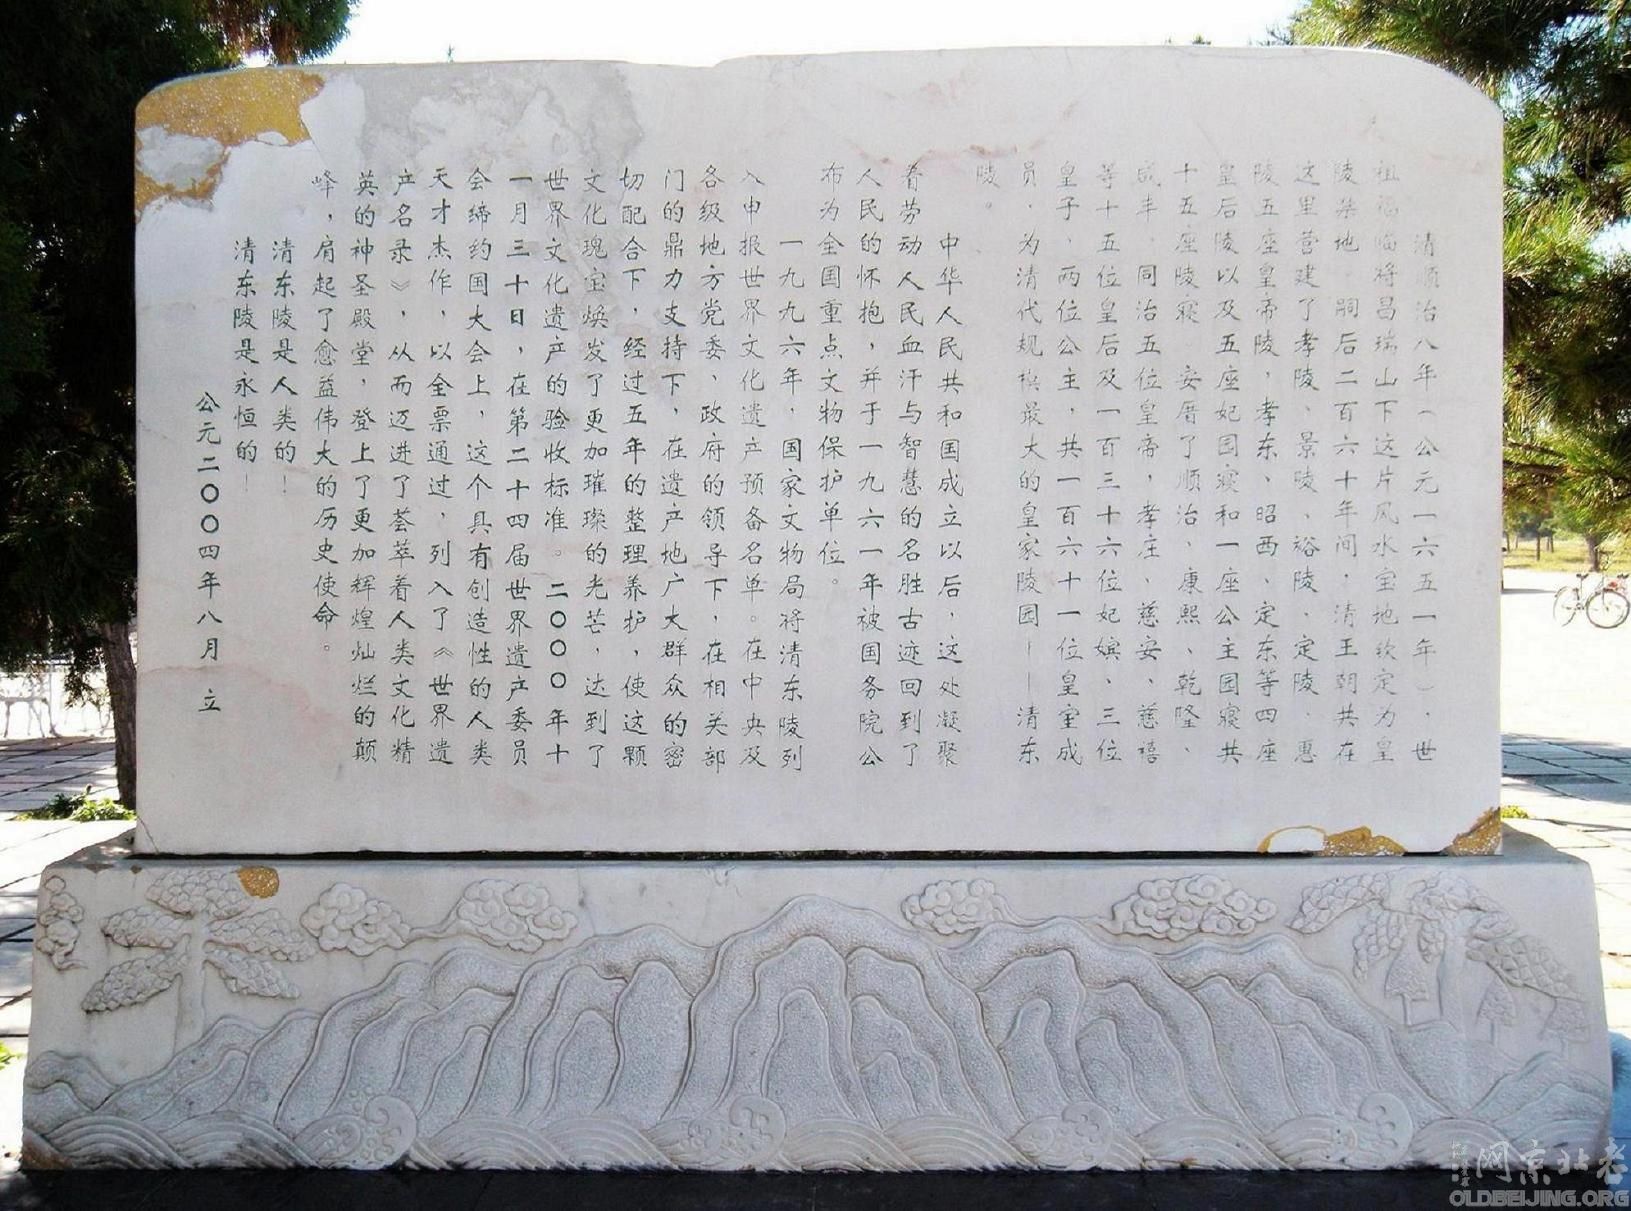 清顺治八年（公元一六五一年），世
祖福临将昌瑞山下这片风水宝地钦定为皇
陵茔地。嗣后二百六十年间，清王朝共在
这里营建了孝陵、景陵、裕陵、定陵、惠
陵五座皇帝陵，孝东、昭西、定东等四座
皇后陵以及五座妃园寝和一座公主园寝共
十五座陵寝。安厝了顺治、康熙、乾隆、
咸丰、同治五位皇帝，孝庄、慈安、慈禧
等十五位皇后及一百三十六位妃嫔、三位
皇子、两位公主，共一百六十一位皇室成
员，为清代规模最大的皇家陵园——清东
陵。
中华人民共和国成立以后，这处凝聚
着劳动人民血汗与智慧的名胜古迹回到了
人民的怀抱，并于一九六一年被国务院公
布为全国重点文物保护单位。
一九九六年，国家文物局将清东陵列
入申报世界文化遗产预备名单。在中央及
各级地方党委、政府的领导下，在相关部
门的鼎力支持下，在遗产地广大群众的密
切配合下，经过五年的整理养护，使这颗
文化瑰宝焕发了更加璀璨的光芒，达到了
世界文化遗产的验收标准。二〇〇〇年十
一月三十日，在第二十四届世界遗产委员
会缔约国大会上，这个具有创造性的人类
天才杰作，以全票通过，列入了《世界遗
产名录》，从而迈进了荟萃着人类文化精
英的神圣殿堂，登上了更加辉煌灿烂的颠
峰，肩起了愈益伟大的历史使命。
清东陵是人类的！
清东陵是永恒的！
公元二〇〇四年八月 立
老北京网
OLDBEIJING.ORG